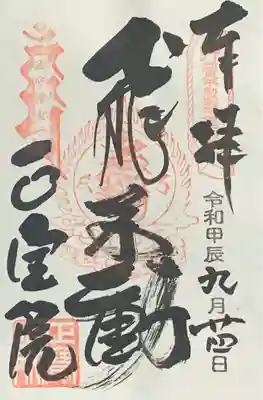 奉拝
令和甲辰九月廿四日
飛不動
正宝院